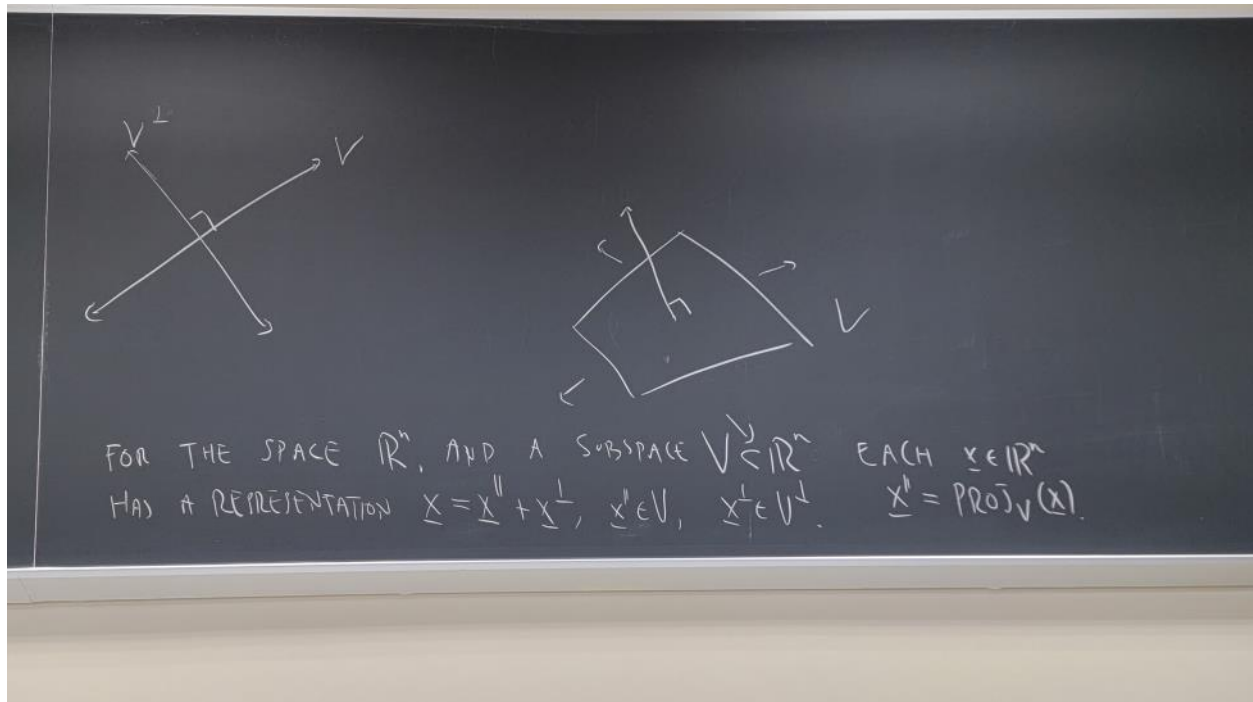 V⊥
V
V
FOR THE SPACE ℝⁿ, AND A SUBSPACE V ⊆ ℝⁿ EACH x̲ ∈ ℝⁿ
HAS A REPRESENTATION x̲ = x̲∥ + x̲⊥, x̲∥ ∈ V, x̲⊥ ∈ V⊥. x̲∥ = PROJ_V(x̲).